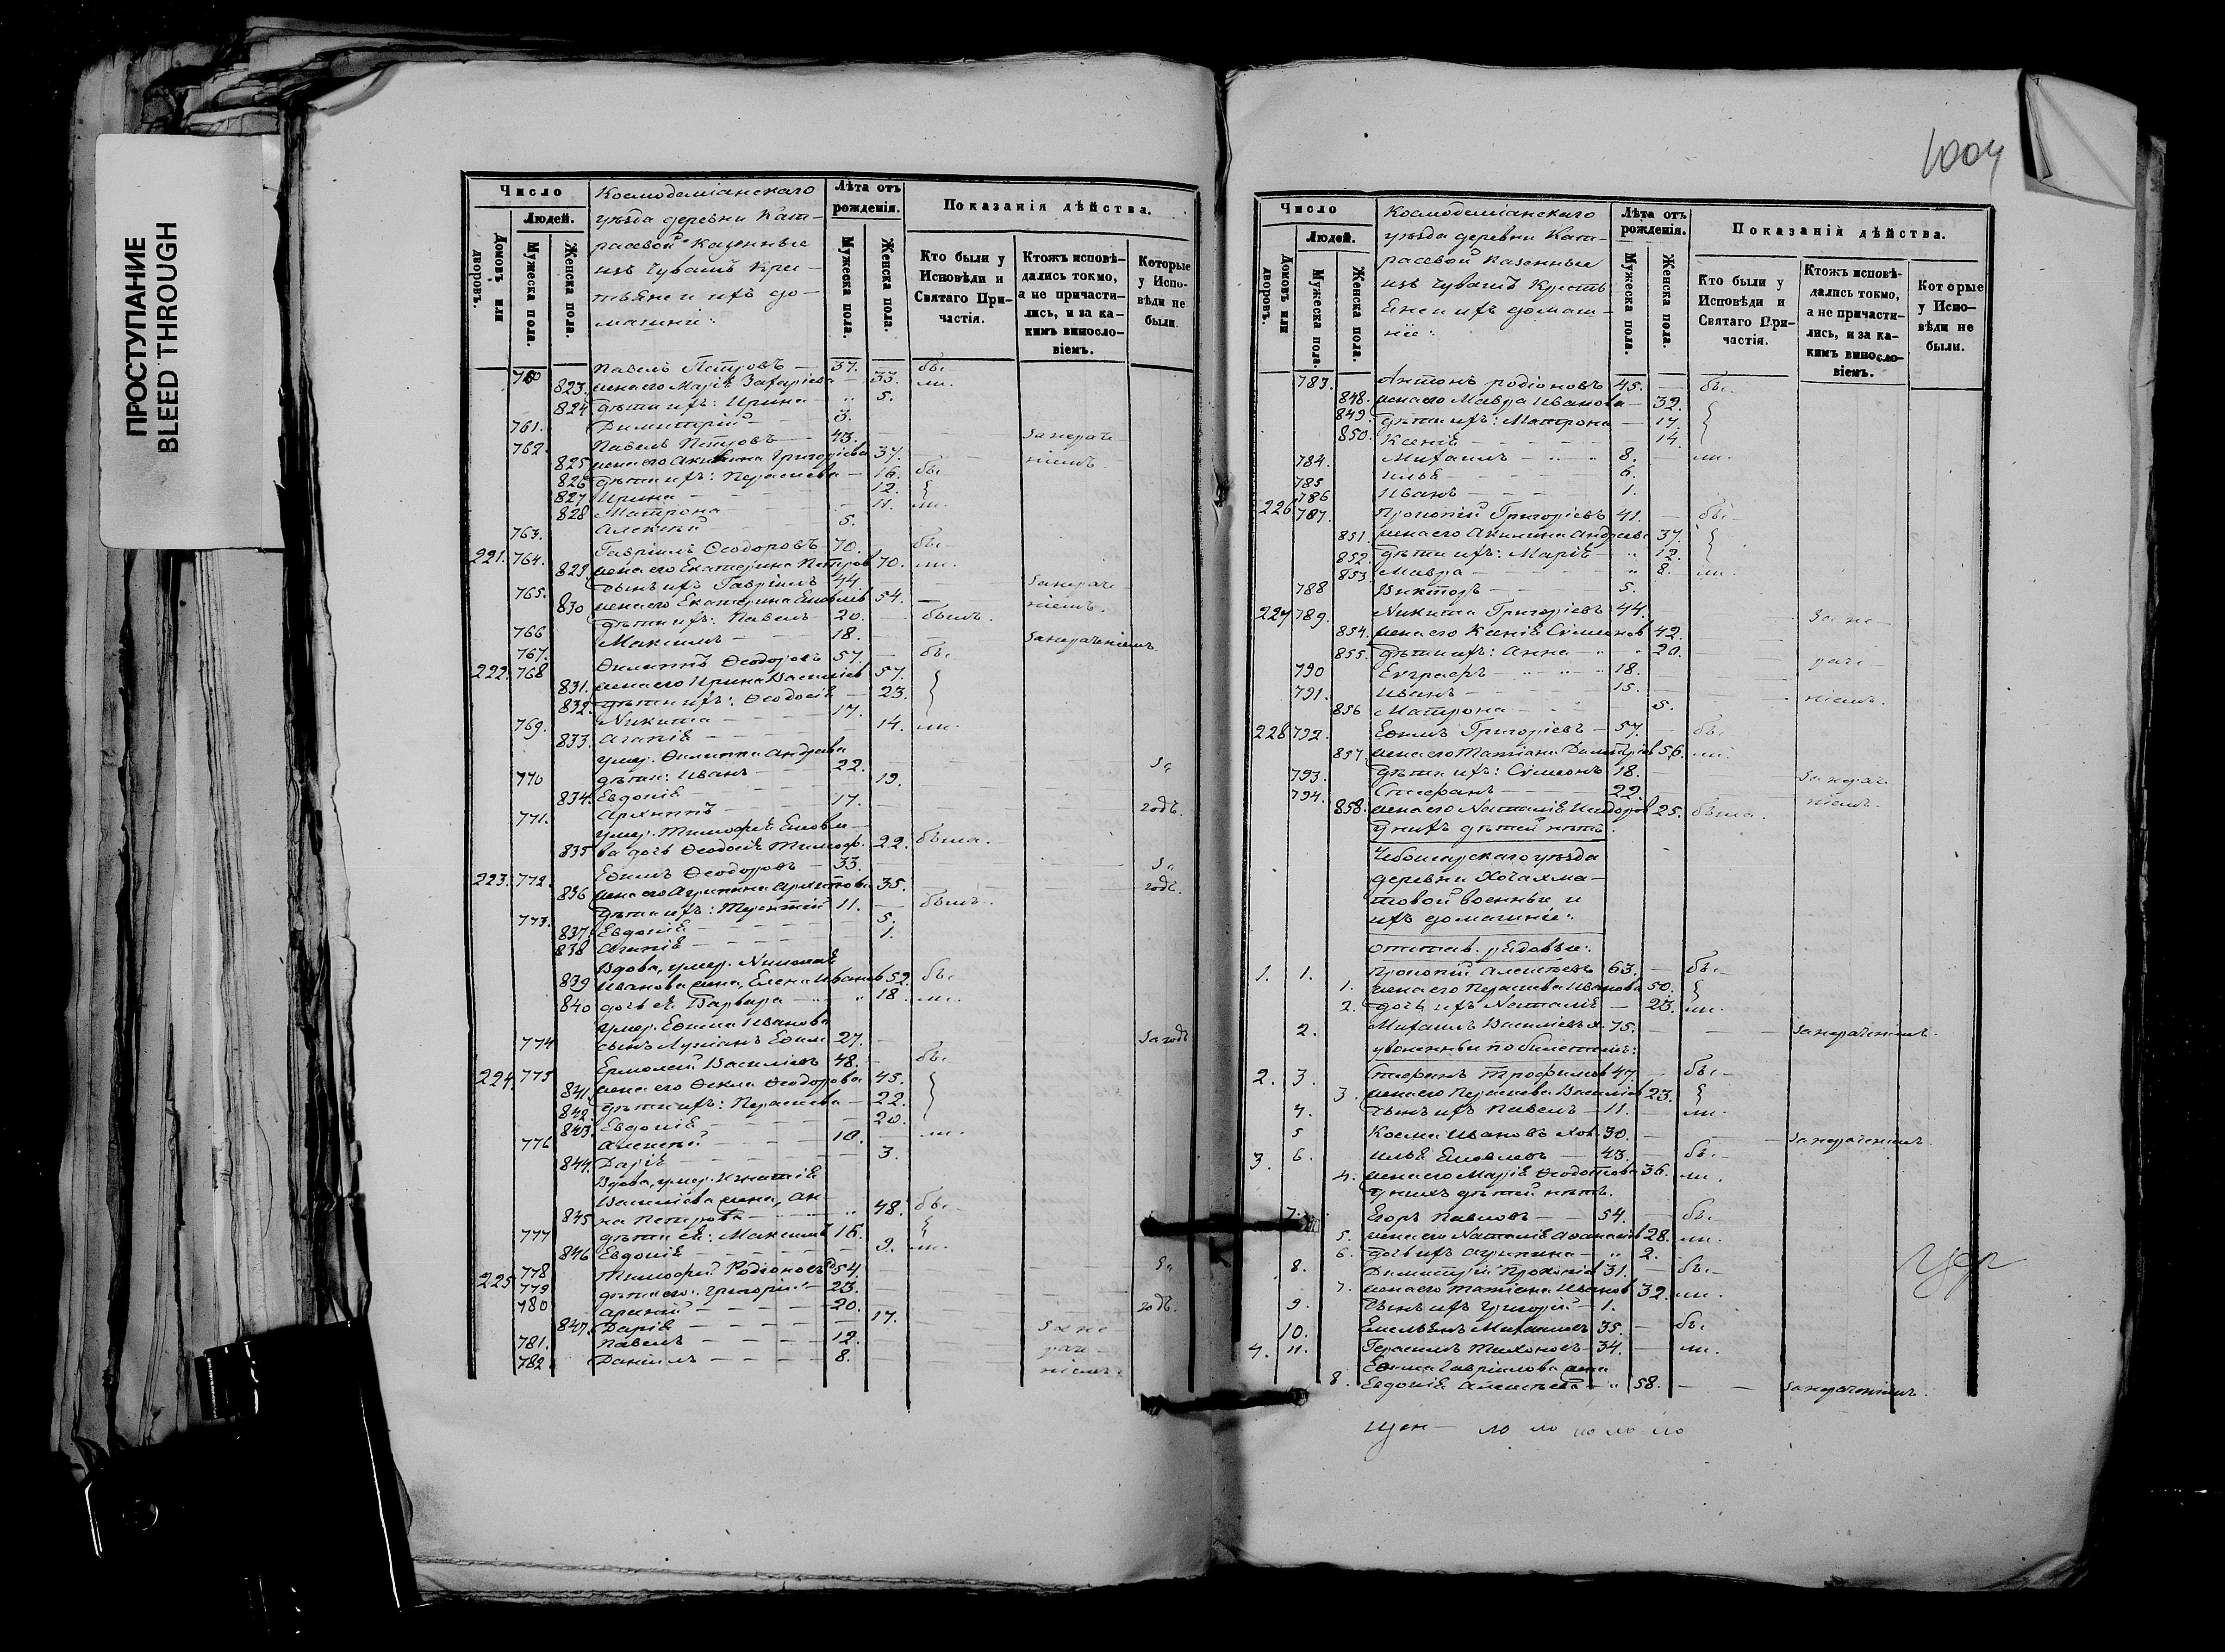 ПРОСТУПАНИЕ
BLEED THROUGH
Число
Людей.
Домовъ или дворовъ.
Мужеска пола.
Женска пола.
Космодеміанскаго
уѣзда деревни Кат-
расевой Казенные
изъ Чувашъ Кре-
стьяне и ихъ до-
машніе:
Лѣта отъ рожденія.
Мужеска пола.
Женска пола.
Показанія дѣйства.
Кто были у Исповѣди и Святаго Причастія.
Ктожъ исповѣдались токмо, а не причастились, и за какимъ винословіемъ.
Которые у Исповѣди не были.
760 Павелъ Петровъ — 37. бы
823. жена его Марія Захаріева — 33. ли.
824 дѣти ихъ: Ирина — 5.
761. Димитрій — 3.
762. Павелъ Петровъ — 43. — за нераче
825 жена его Акилина Григоріева 37. — ніемъ.
826 дѣти ихъ: Параскева — 16. бы
827 Ирина — 12.
828 Матрона — 11. ли.
763. Алексѣй — 5.
221. 764. Гавріилъ Ѳеодоровъ 70. бы
829 жена его Екатерина Петров 70. ли.
765. сынъ ихъ Гавріилъ 44 — за нераче
830 жена его Екатерина Еѳовлев 54. — ніемъ.
766 дѣти ихъ: Павелъ 20. былъ.
767. Максимъ — 18. — за нераченіемъ
222. 768 Филиппъ Ѳеодоровъ 57. бы
831. жена его Ирина Василіев 57.
832. дѣти ихъ: Ѳеодосія — 23.
769. Никита — 17.
833. Агапія — 14. ли
умер. Филиппа Андреева
770 дѣти: Иванъ — 22. — за
834. Евдокія — 19.
771. Архиппъ — 17. — годъ.
умер. Тимофея Еѳовле-
835 ва дочь Ѳеодосія Тимоф. 22. была.
223. 772. Еѳимъ Ѳеодоровъ — 33. — за
836 жена его Агрипина Архипова 35. — годъ.
773. дѣти ихъ: Терентій 11. — былъ.
837. Евдокія — 5.
838 Агапія — 1.
Вдова, умер. Николая
839 Иванова жена, Елена Иванов 52. бы
840 дочь ея Варвара — 18. ли.
умер. Еѳима Иванова
774 сынъ Лукіанъ Еѳим 27. — за годъ
224. 775 Ермолай Василіевъ 48. — бы
841. жена его Ѳекла Ѳеодорова 45.
842. дѣти ихъ: Параскева — 22.
843. Евдокія — 20.
776 Алексѣй — 10. ли.
844. Дарія — 3.
Вдова, умер. Игнатія
Василіева жена, Ан-
845 на Петрова — 48. бы
777 дѣти ея: Максимъ 16.
846 Евдокія — 9. ли.
225 778 Тимофей Родіоновъ 54. — за
779 дѣти его: Григорій — 23.
780 Арсеній — 20. — годъ.
847. Дарія — 17. — за не
781. Павелъ — 12. — раче
782. Даніилъ — 8. — ніемъ
1004
Число
Людей.
Домовъ или дворовъ.
Мужеска пола.
Женска пола.
Космодеміанскаго
уѣзда деревни Кат-
расевой Казенные
изъ Чувашъ Кресть
яне и ихъ домаш-
ніе:
Лѣта отъ рожденія.
Мужеска пола.
Женска пола.
Показанія дѣйства.
Кто были у Исповѣди и Святаго Причастія.
Ктожъ исповѣдались токмо, а не причастились, и за какимъ винословіемъ.
Которые у Исповѣди не были.
783. Антонъ Родіоновъ 45. — бы
848. жена его Мавра Иванова — 32.
849. дѣти ихъ: Матрона — 17.
850. Ксенія — 14.
784. Михаилъ — 8. — ли.
785 Илья — 6.
786 Иванъ — 1.
226 787. Прокопій Григоріевъ 41. — бы
851. жена его Акилина Андреев 37.
852. дѣти ихъ: Марія — 12.
853. Мавра — 8. ли.
788 Викторъ — 5.
227 789. Никита Григоріевъ 44. за не
854. жена его Ксенія Сѵмеонов 42.
855. дѣти ихъ: Анна — 20. — раче
790 Евграфъ — 18.
791. Иванъ — 15. — ніемъ.
856 Матрона — 5.
228 792. Еѳимъ Григоріевъ — 57. — бы
857. жена его Татіана Димитріев 56. ли.
793. дѣти ихъ: Сѵмеонъ 18. — за нерач
794. Стефанъ — 22. — ніемъ.
858. жена его Наталія Исидоров 25. была.
у нихъ дѣтей нѣтъ.
Чебоксарскаго уѣзда
деревни Хочахма-
товой военные и
ихъ домашніе:
отстав. рядовые:
1. 1. Прокопій Алексѣевъ 63. — бы
1. жена его Параскева Иванова 50.
2. дочь ихъ Наталія — 23. ли.
2. Михаилъ Василіевъ х. 75. — за нераченіемъ.
уволенные по билетамъ:
2. 3. Стефанъ Трофимов 47. — бы
3. жена его Параскева Василіев 23.
4. сынъ ихъ Павелъ — 11. — ли.
5 Косма Ивановъ хол. 30. — за нераченіемъ.
3. 6. Илья Яковлевъ — 43. бы
4. жена его Марія Ѳедотова 36. ли.
у нихъ дѣтей нѣтъ.
7. Егоръ Павловъ — 54. — бы
5. жена его Наталія Аѳанасіев 28. ли.
6. дочь ихъ Агрипина — 2.
8. Димитрій Прокопіев 31. — бы
7. жена его Татіана Иванов 32. ли.
9. сынъ ихъ Григорій — 1.
10. Емельянъ Михаиловъ 35. — бы
4. 11. Герасимъ Тихоновъ 34. — ли.
Еѳима Гавріилова жена
8. Евдокія Алексѣева — 58. — за нераченіемъ.